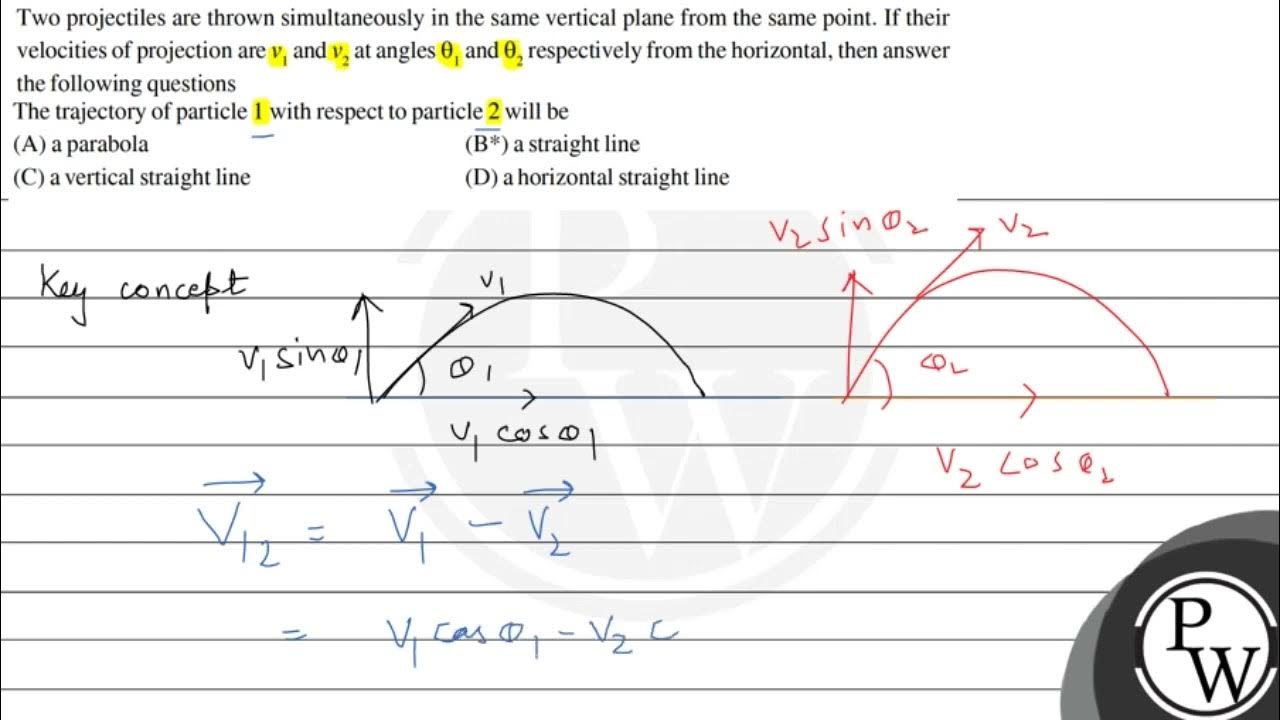 Two projectiles are thrown simultaneously in the same vertical plane from the same point. If their
velocities of projection are v₁ and v₂ at angles θ₁ and θ₂ respectively from the horizontal, then answer
the following questions
The trajectory of particle 1 with respect to particle 2 will be
(A) a parabola (B*) a straight line
(C) a vertical straight line (D) a horizontal straight line
V₂ sinθ₂ V₂
Key concept V₁
V₁ sinθ₁ θ₁ θ₂
V₁ cosθ₁ V₂ cosθ₂
V⃗₁₂ = V⃗₁ − V⃗₂
= V₁ cosθ₁ − V₂ c
PW
P
W